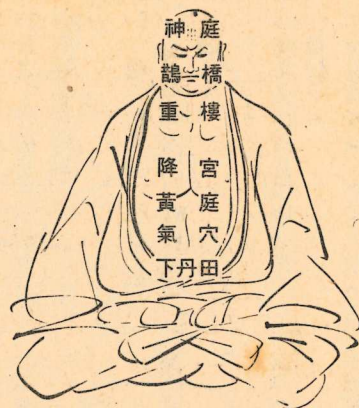 神庭
鵲橋
重樓
降宮
黃庭
氣穴
下丹田